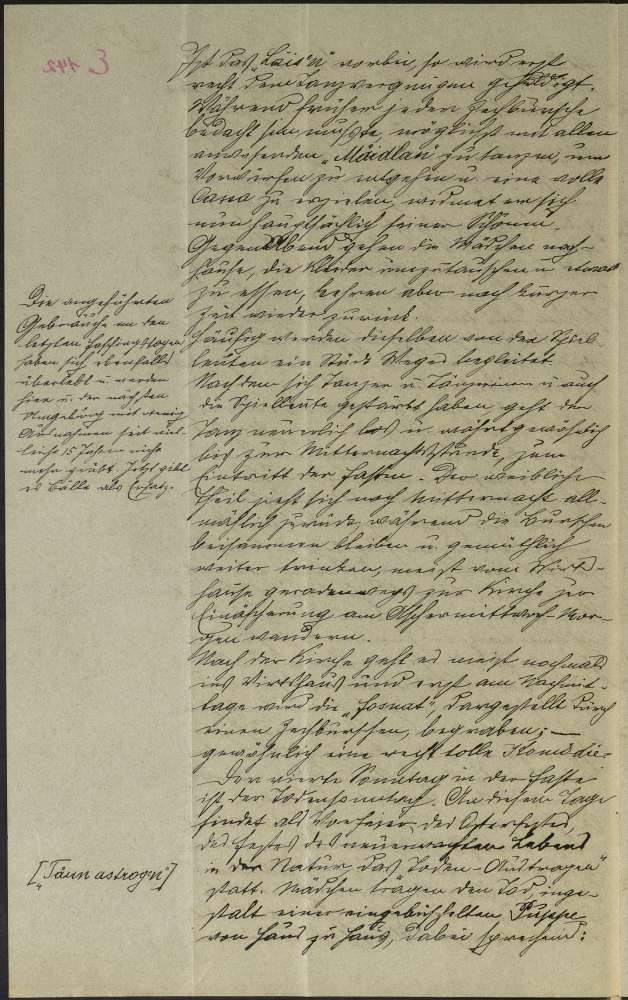 E 142
Ist das „Läis'n" vorbei, so wird erst
recht dem Tanzvergnügen gehuldigt.
Während früher jeder Zechbursche
bedacht sein mußte, möglichst mit allen
anwesenden „Maidlan" zu tanzen, um
Vorwürfen zu entgehen u. eine volle
Cassa zu erzielen, widmet er sich
nun hauptsächlich seiner Schönen.
Gegen Abend gehen die Mädchen nach-
hause, die Kleider umzutauschen u. etwas
zu essen, kehren aber nach kurzer
Zeit wieder zurück.
Häufig werden dieselben von den Spiel-
leuten ein Stück Weges begleitet.
Nachdem sich Tänzer u. Tänzerinnen u. auch
die Spielleute gestärkt haben, geht der
Tanz neuerlich los u. währt gewöhnlich
bis zur Mitternachtsstunde, zum
Eintritt der Fasten. Der weibliche
Theil zieht sich nach Mitternacht all-
mählich zurück, während die Burschen
beisammen bleiben u. gemüthlich
weiter trinken, meist vom Wirts-
hause geradenwegs zur Kirche zur
Einäscherung am Aschermittwoch-Mor-
gen wandern.
Nach der Kirche geht es meist nochmals
ins Wirtshaus und erst am Nachmit-
tage wird die „Fosnat", dargestellt durch
einen Zechburschen, begraben; —
gewöhnlich eine recht tolle Komödie.
Der vierte Sonntag in der Faste
ist der Todensonntag. An diesem Tage
findet als Vorfeier des Osterfestes,
des Festes des neuerwachten Lebens
in der Natur das „Toden-Austragen"
statt. Mädchen tragen den Tod, inge-
stalt einer eingebüschelten Puppe
von Haus zu Haus, dabei sprechend:
Die angeführten
Gebräuche an den
letzten Faschingstagen
haben sich ebenfalls
überlebt u. werden
hier u. der nächsten
Umgebung mit wenig
Ausnahmen seit viel-
leicht 15 Jahren nicht
mehr geübt. Jetzt gibt
es Bälle als Ersatz.
[„Táun astrog'n"]